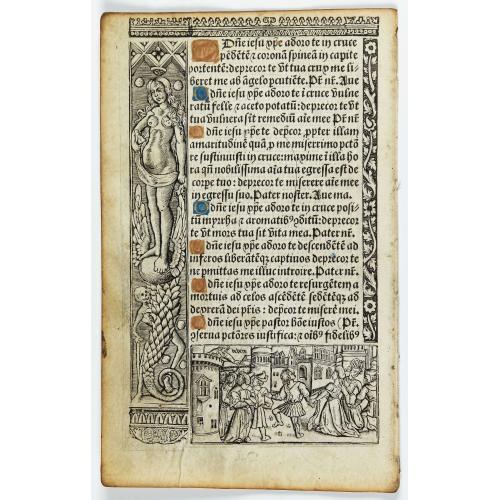 O Dñe iesu xp̄e adoro te in cruce
pēdētē ⁊ coronā spineā in capite
portentē: deprecor te vt tua crux me li⸗
beret me ab āgelo pcutiēte. Pr̄ nr̄. Aue
O dñe iesu xp̄e adoro te ī cruce vulne
ratū felle ⁊ aceto potatū: deprecor te vt
tua vulnera sit remediū aīe mee Pr̄ nr̄.
O dñe iesu xp̄e te dep̄cor ꝓpter illam
amaritudinē quā ꝓ me miserrimo pctōre
sustinuisti in cruce: maxime ī illa ho
ra qñ nobilissima aīa tua egressa est de
corpe tuo: deprecor te miserere aīe mee
in egressu suo. Pater noster. Aue ma.
O dñe iesu xp̄e adoro te in cruce posi
tū myrrha ⁊ aromatibꝰ cōditū: deprecor
te vt mors tua sit vita mea. Pater nr̄.
O dñe iesu xp̄e adoro te descendētē ad
inferos liberātēqꝫ captiuos deprecor te
ne pmittas me illuc introire. Pater nr̄.
O dñe iesu xp̄e adoro te resurgētem a
mortuis ad celos ascēdētē sedētēqꝫ ad
dexterā dei pr̄is: dep̄cor te miserē mei.
O dñe iesu xp̄e pastor bōe iustos (Pr̄.
cōserua pctōres iustifica: ⁊ oībꝰ fidelibꝰ